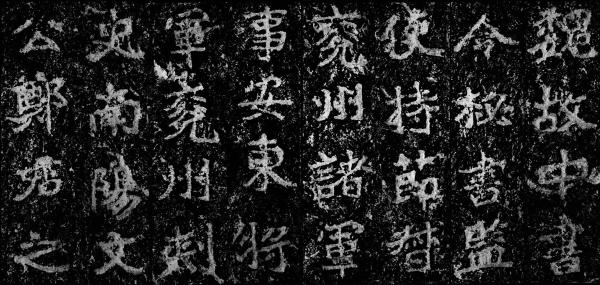 魏故中書
令秘書監
使持節督
兗州諸軍
事安東將
軍兗州刺
史南陽文
公鄭君之